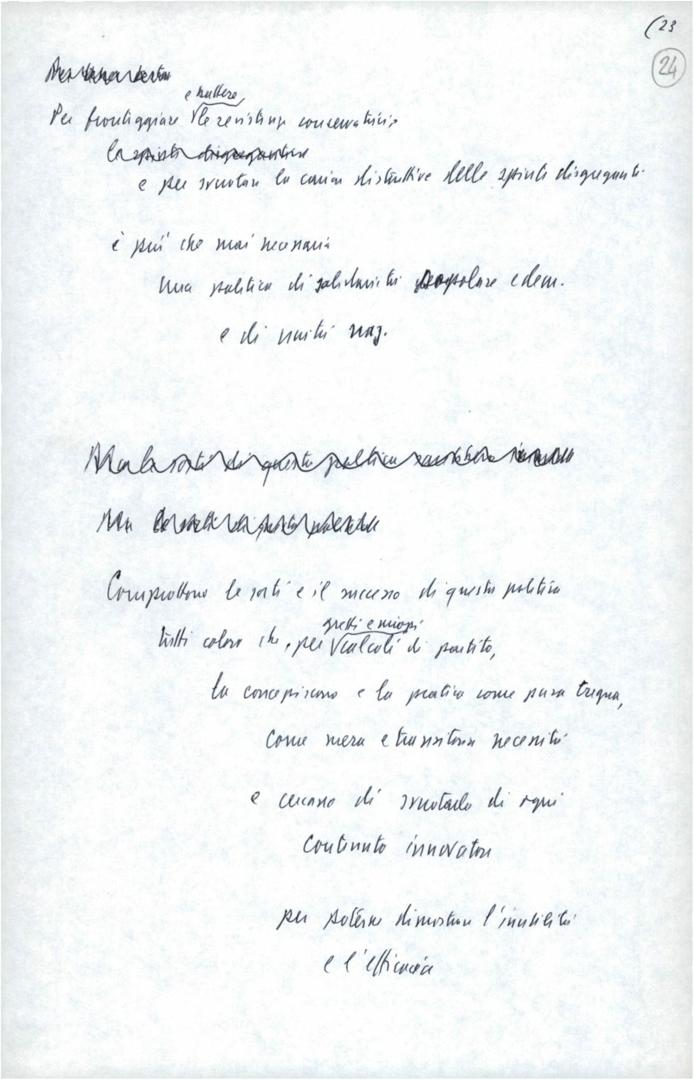 (23
24
e battere
Per fronteggiare le resistenze conservatrici
e per svuotare la carica distruttiva delle spinte disgreganti
è più che mai necessaria
una politica di solidarietà popolare e dem.
e di unità naz.
Ma
Compromettono le sorti e il successo di questa politica
gretti e miopi
tutti coloro che, per calcoli di partito,
la concepiscono e la pratica come pura tregua,
come mera e transitoria necessità
e cercano di svuotarla di ogni
contenuto innovatore
per poterne dimostrare l'inutilità
e l'efficacia